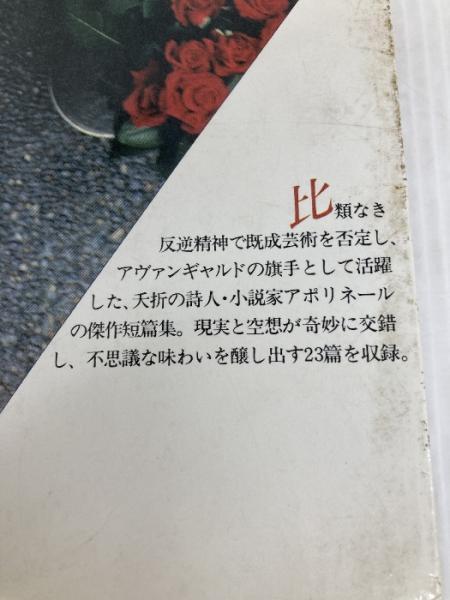 比類なき
反逆精神で既成芸術を否定し、
アヴァンギャルドの旗手として活躍
した、夭折の詩人・小説家アポリネール
の傑作短篇集。現実と空想が奇妙に交錯
し、不思議な味わいを醸し出す23篇を収録。